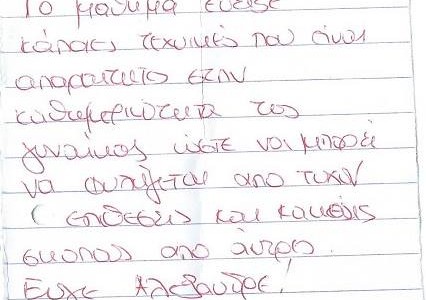 Το μάθημα έδειξε
κάποιες τεχνικές που είναι
απαραίτητο στην
καθημερινότητα της
γυναίκας ώστε να μπορεί
να φυλάγεται από τυχόν
( επιθέσεις και κακούς
σκοπούς από άντρες.
Αλέξανδρε!